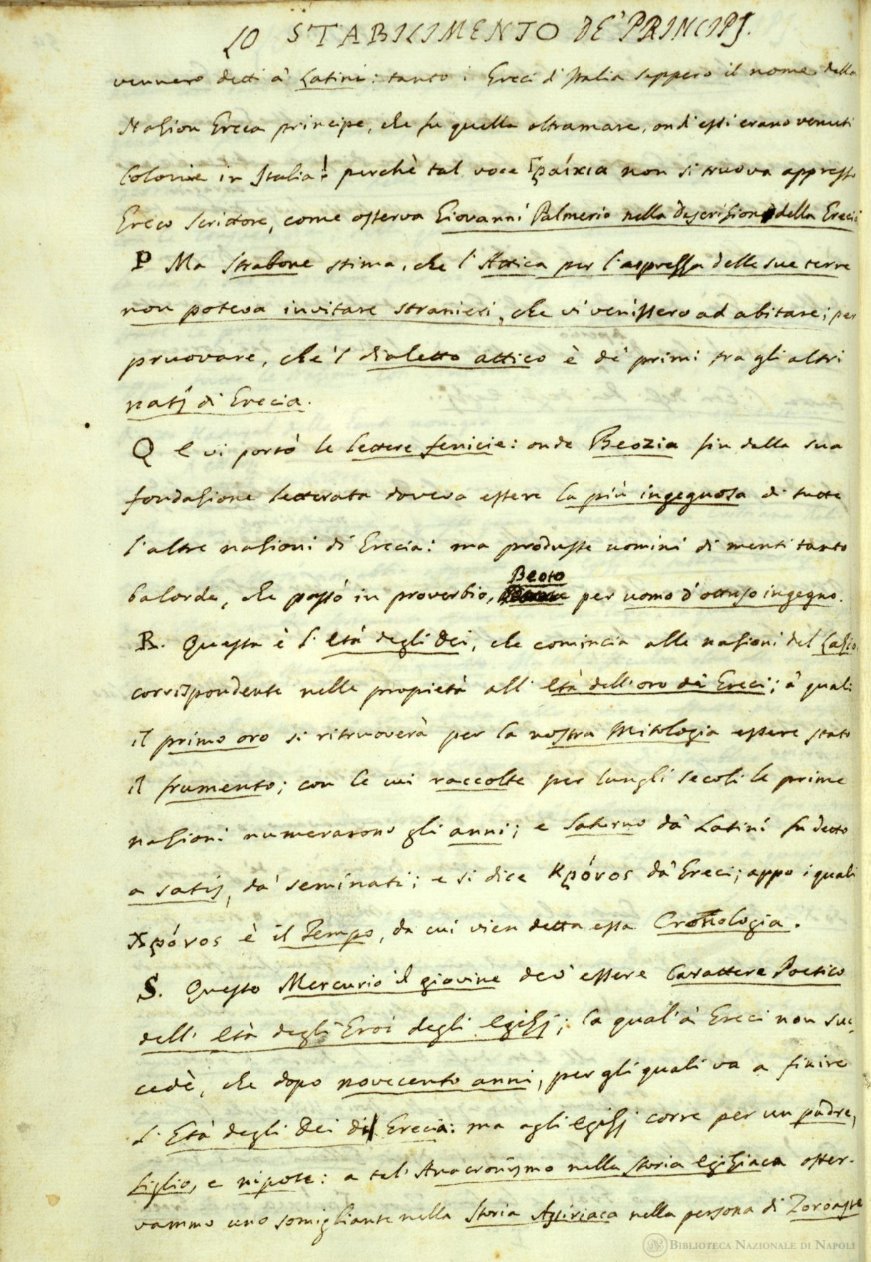 LO STABILIMENTO DE' PRINCIPJ.
vennero detti a' Latini: tanto i Greci d'Italia seppero il nome della
Nazion Greca principe, che fu quella oltramare, ond'essi erano venuti
Colonie in Italia! perchè tal voce Γραίκια non si truova appresso
Greco Scrittore, come osserva Giovanni Palmerio nella descrizion della Grecia
P Ma Strabone stima, che l'Attica per l'asprezza delle sue terre
non poteva invitare stranieri, che vi venissero ad abitare; per
pruovare, che 'l dialetto attico è de' primi tra gli altri
natj di Grecia.
Q E vi portò le lettere fenicie: onde Beozia fin dalla sua
fondazione letterata doveva essere la più ingegnosa di tutte
l'altre nazioni di Grecia: ma produsse uomini di menti tanto
balorde, che passò in proverbio, Beoto per uomo d'ottuso ingegno.
R. Questa è l'Età degli Dei, che comincia alle nazioni del Lazio
corrispondente nelle propietà all'Età dell'oro de' Greci; a' quali
il primo oro si ritruoverà per la nostra Mitologia essere stato
il frumento; con le cui raccolte per lunghi secoli le prime
nazioni numerarono gli anni; e Saturno da' Latini fu detto
a satis, da' seminati; e si dice Κρόνος da' Greci; appo i quali
Χρόνος è il Tempo, da cui vien detta essa Cronologia.
S. Questo Mercurio il giovine dev'essere Carattere Poetico
dell'Età degli Eroi degli Egizj; la qual' a' Greci non suc-
cedè, che dopo novecento anni, per gli quali va a finire
l'Età degli Dei di Grecia: ma agli Egizj corre per un padre,
figlio, e nipote: a tal' Anacronismo nella storia Egiziaca osser-
vammo uno somigliante nella Storia Assiriaca nella persona di Zoroaste
BIBLIOTECA NAZIONALE DI NAPOLI